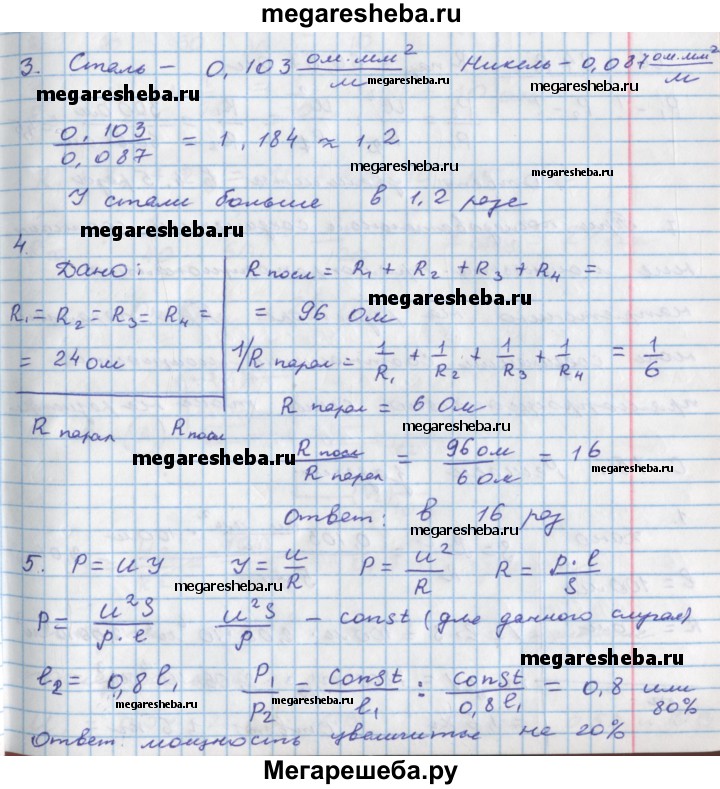 megaresheba.ru
3. Сталь - 0,103 ом·мм²/м Никель - 0,087 ом·мм²/м
megaresheba.ru megaresheba.ru megaresheba.ru
0,103/0,087 = 1,184 ≈ 1,2
megaresheba.ru
У стали больше в 1,2 раза
megaresheba.ru
4.
Дано: R посл = R₁ + R₂ + R₃ + R₄ =
megaresheba.ru
R₁ = R₂ = R₃ = R₄ = = 96 Ом
= 24 ом 1/R парал = 1/R₁ + 1/R₂ + 1/R₃ + 1/R₄ = 1/6
R парал = 6 Ом
megaresheba.ru
R парал R посл
megaresheba.ru R посл/R парал = 96 ом/6 Ом = 16
megaresheba.ru
Ответ: в 16 раз
megaresheba.ru
5. P = U У У = u/R P = u²/R R = p·l/S
megaresheba.ru megaresheba.ru
P = u²S/p·l u²S/p - const (для данного случая)
megaresheba.ru
l₂ = 0,8 l₁ P₁/P₂ = const/l₁ : const/0,8 l₁ = 0,8 или 80%
megaresheba.ru megaresheba.ru
Ответ. мощность увеличится на 20%
Мегарешеба.ру